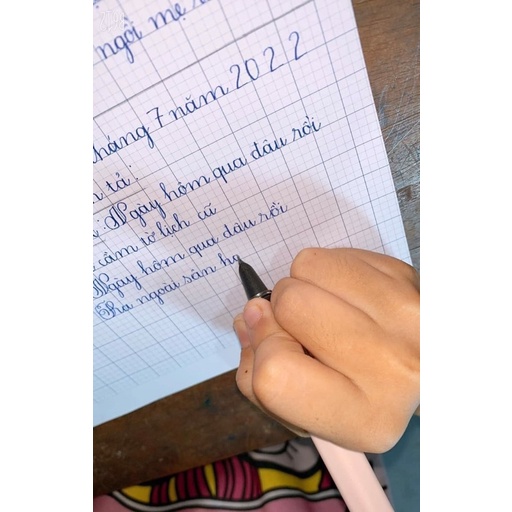 ngồi mẹ
háng 7 năm 2022
tả:
: Ngày hôm qua đâu rồi
cầm tờ lịch cũ
Ngày hôm qua đâu rồi
Ra ngoài sân hỏ